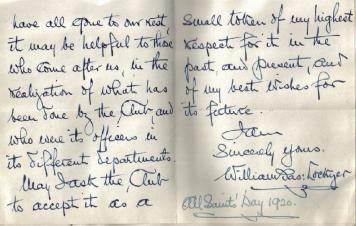 have all gone to our rest,
it may be helpful to those
who come after us, in the
realization of what has
been done by the Club, and
who were its officers in
its different departments.
May I ask the Club
to accept it as a
small token of my highest
respect for it in the
past, and present, and
of my best wishes for
its future.
I am
Sincerely Yours.
William
All Saints' Day 1920.